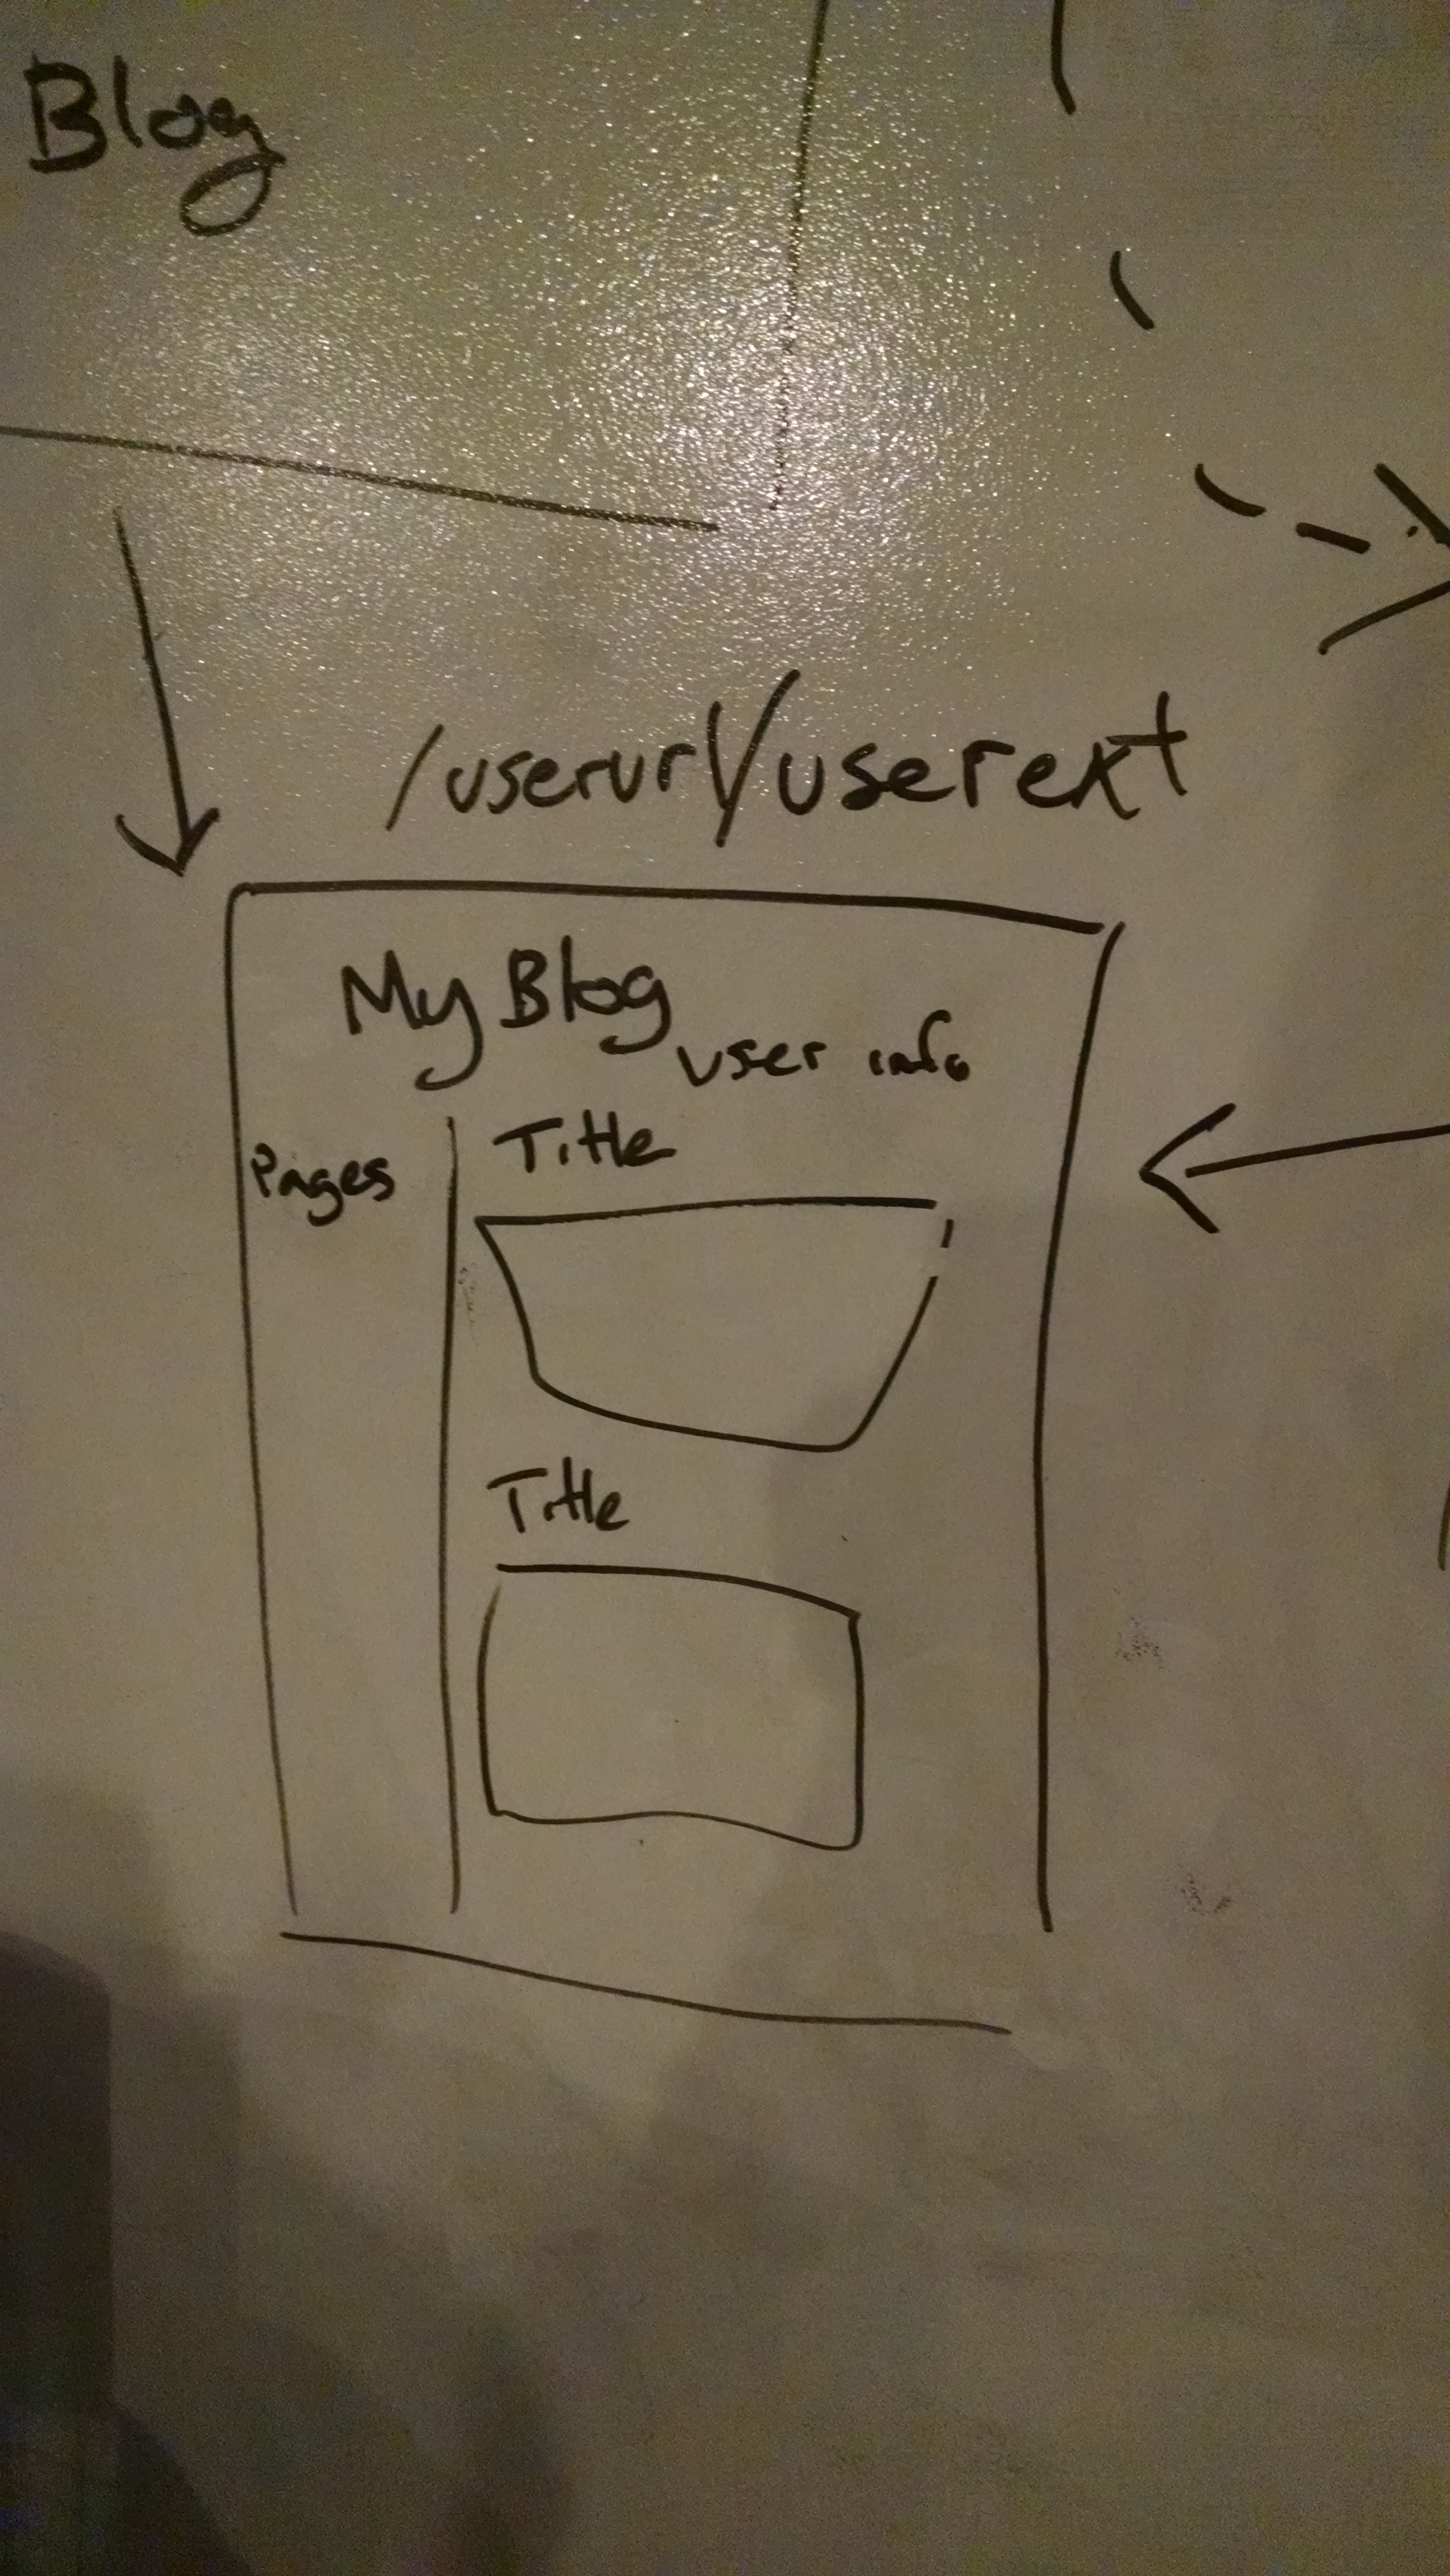 Blog
/userurl/userext
My Blog
user info
Pages
Title
Title